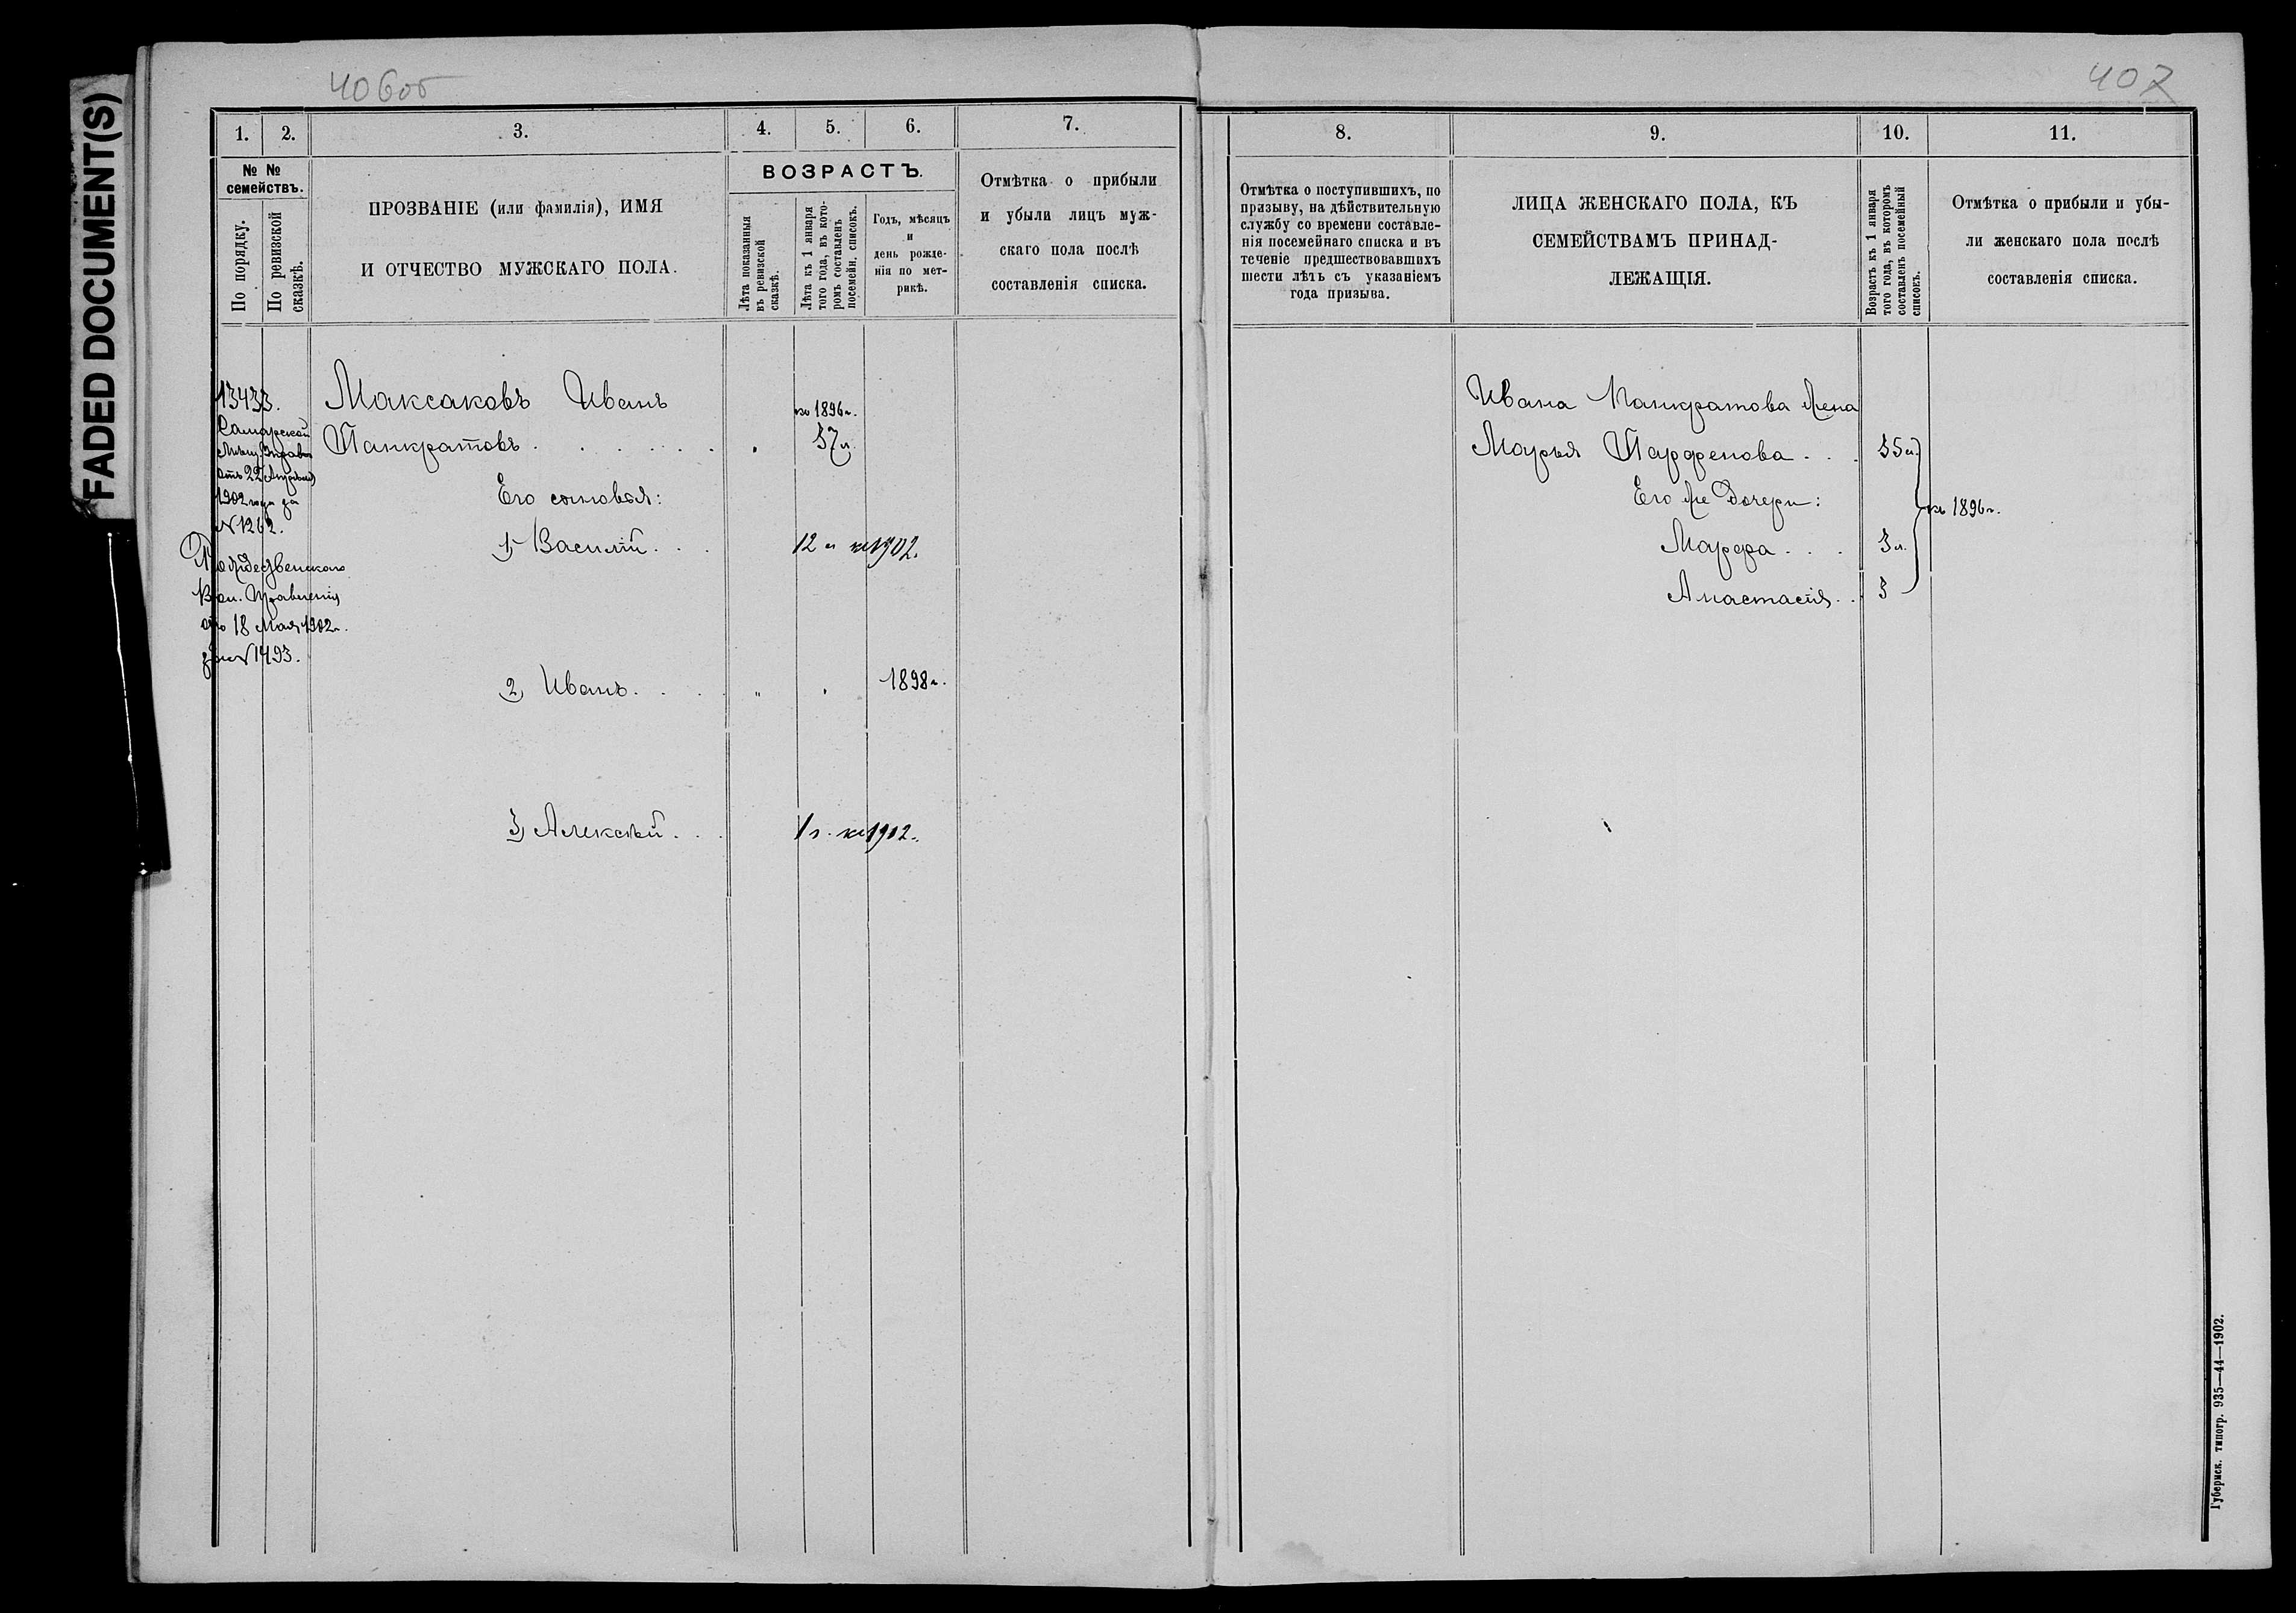 FADED DOCUMENT(S)
406об
407
1.
2.
3.
4.
5.
6.
7.
8.
9.
10.
11.
№ №
семействъ.
По порядку.
По ревизской
сказкѣ.
ПРОЗВАНІЕ (или фамилія), ИМЯ
И ОТЧЕСТВО МУЖСКАГО ПОЛА.
ВОЗРАСТЪ.
Лѣта показанныя
въ ревизской
сказкѣ.
Лѣта къ 1 января
того года, въ кото-
ромъ составленъ
посемейн. списокъ.
Годъ, мѣсяцъ
и
день рожде-
нія по мет-
рикѣ.
Отмѣтка о прибыли
и убыли лицъ муж-
скаго пола послѣ
составленія списка.
Отмѣтка о поступившихъ, по
призыву, на дѣйствительную
службу со времени составле-
нія посемейнаго списка и въ
теченіе предшествовавшихъ
шести лѣтъ съ указаніемъ
года призыва.
ЛИЦА ЖЕНСКАГО ПОЛА, КЪ
СЕМЕЙСТВАМЪ ПРИНАД-
ЛЕЖАЩІЯ.
Возрастъ къ 1 января
того года, въ которомъ
составленъ посемейный
списокъ.
Отмѣтка о прибыли и убы-
ли женскаго пола послѣ
составленія списка.
13433.
Самарской
Мѣщ. Управы
отъ 22 Апрѣля
1902 года за
№ 1262.
Рождественскаго
Вол. Правленія
отъ 18 Мая 1902 г.
за № 1493.
Максаковъ Иванъ
Панкратовъ . . . . . . . къ 1896 г. 37 л.
Его сыновья:
1) Василій . . . 12 л къ 1902.
2) Иванъ . . . . " . 1898 г.
3) Алексѣй . . . 1 г. къ 1902.
Ивана Панкратова жена
Марья Парфенова . . . 35 л.
Его же дочери:
къ 1896 г.
Марфа . . . 3 л.
Анастасія . . 3
Губернск. типогр. 935—44—1902.